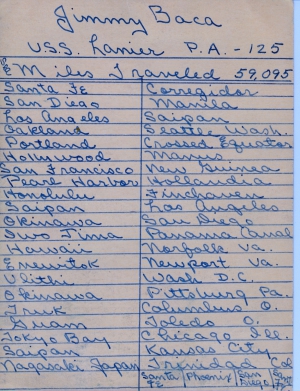 Jimmy Baca
U.S.S. Lanier P.A. - 125
Miles Traveled 59,095
Santa Fe Corregidor
San Diego Manila
Los Angeles Saipan
Oakland Seattle Wash.
Portland Crossed Equator
Hollywood Manus
San Francisco New Guinea
Pearl Harbor Hollandia
Honolulu Finchaven
Saipan Los Angeles
Okinawa San Diego
Iwo Jima Panama Canal
Hawaii Norfolk Va.
Enewitok Newport Va.
Ulithi Wash D.C.
Okinawa Pittsburg Pa.
Truk Columbus O.
Guam Toledo O.
Tokyo Bay Chicago Ill.
Saipan Kansas City
Nagasaki Japan Trinidad Col
Santa Fe Phoenix San Diego